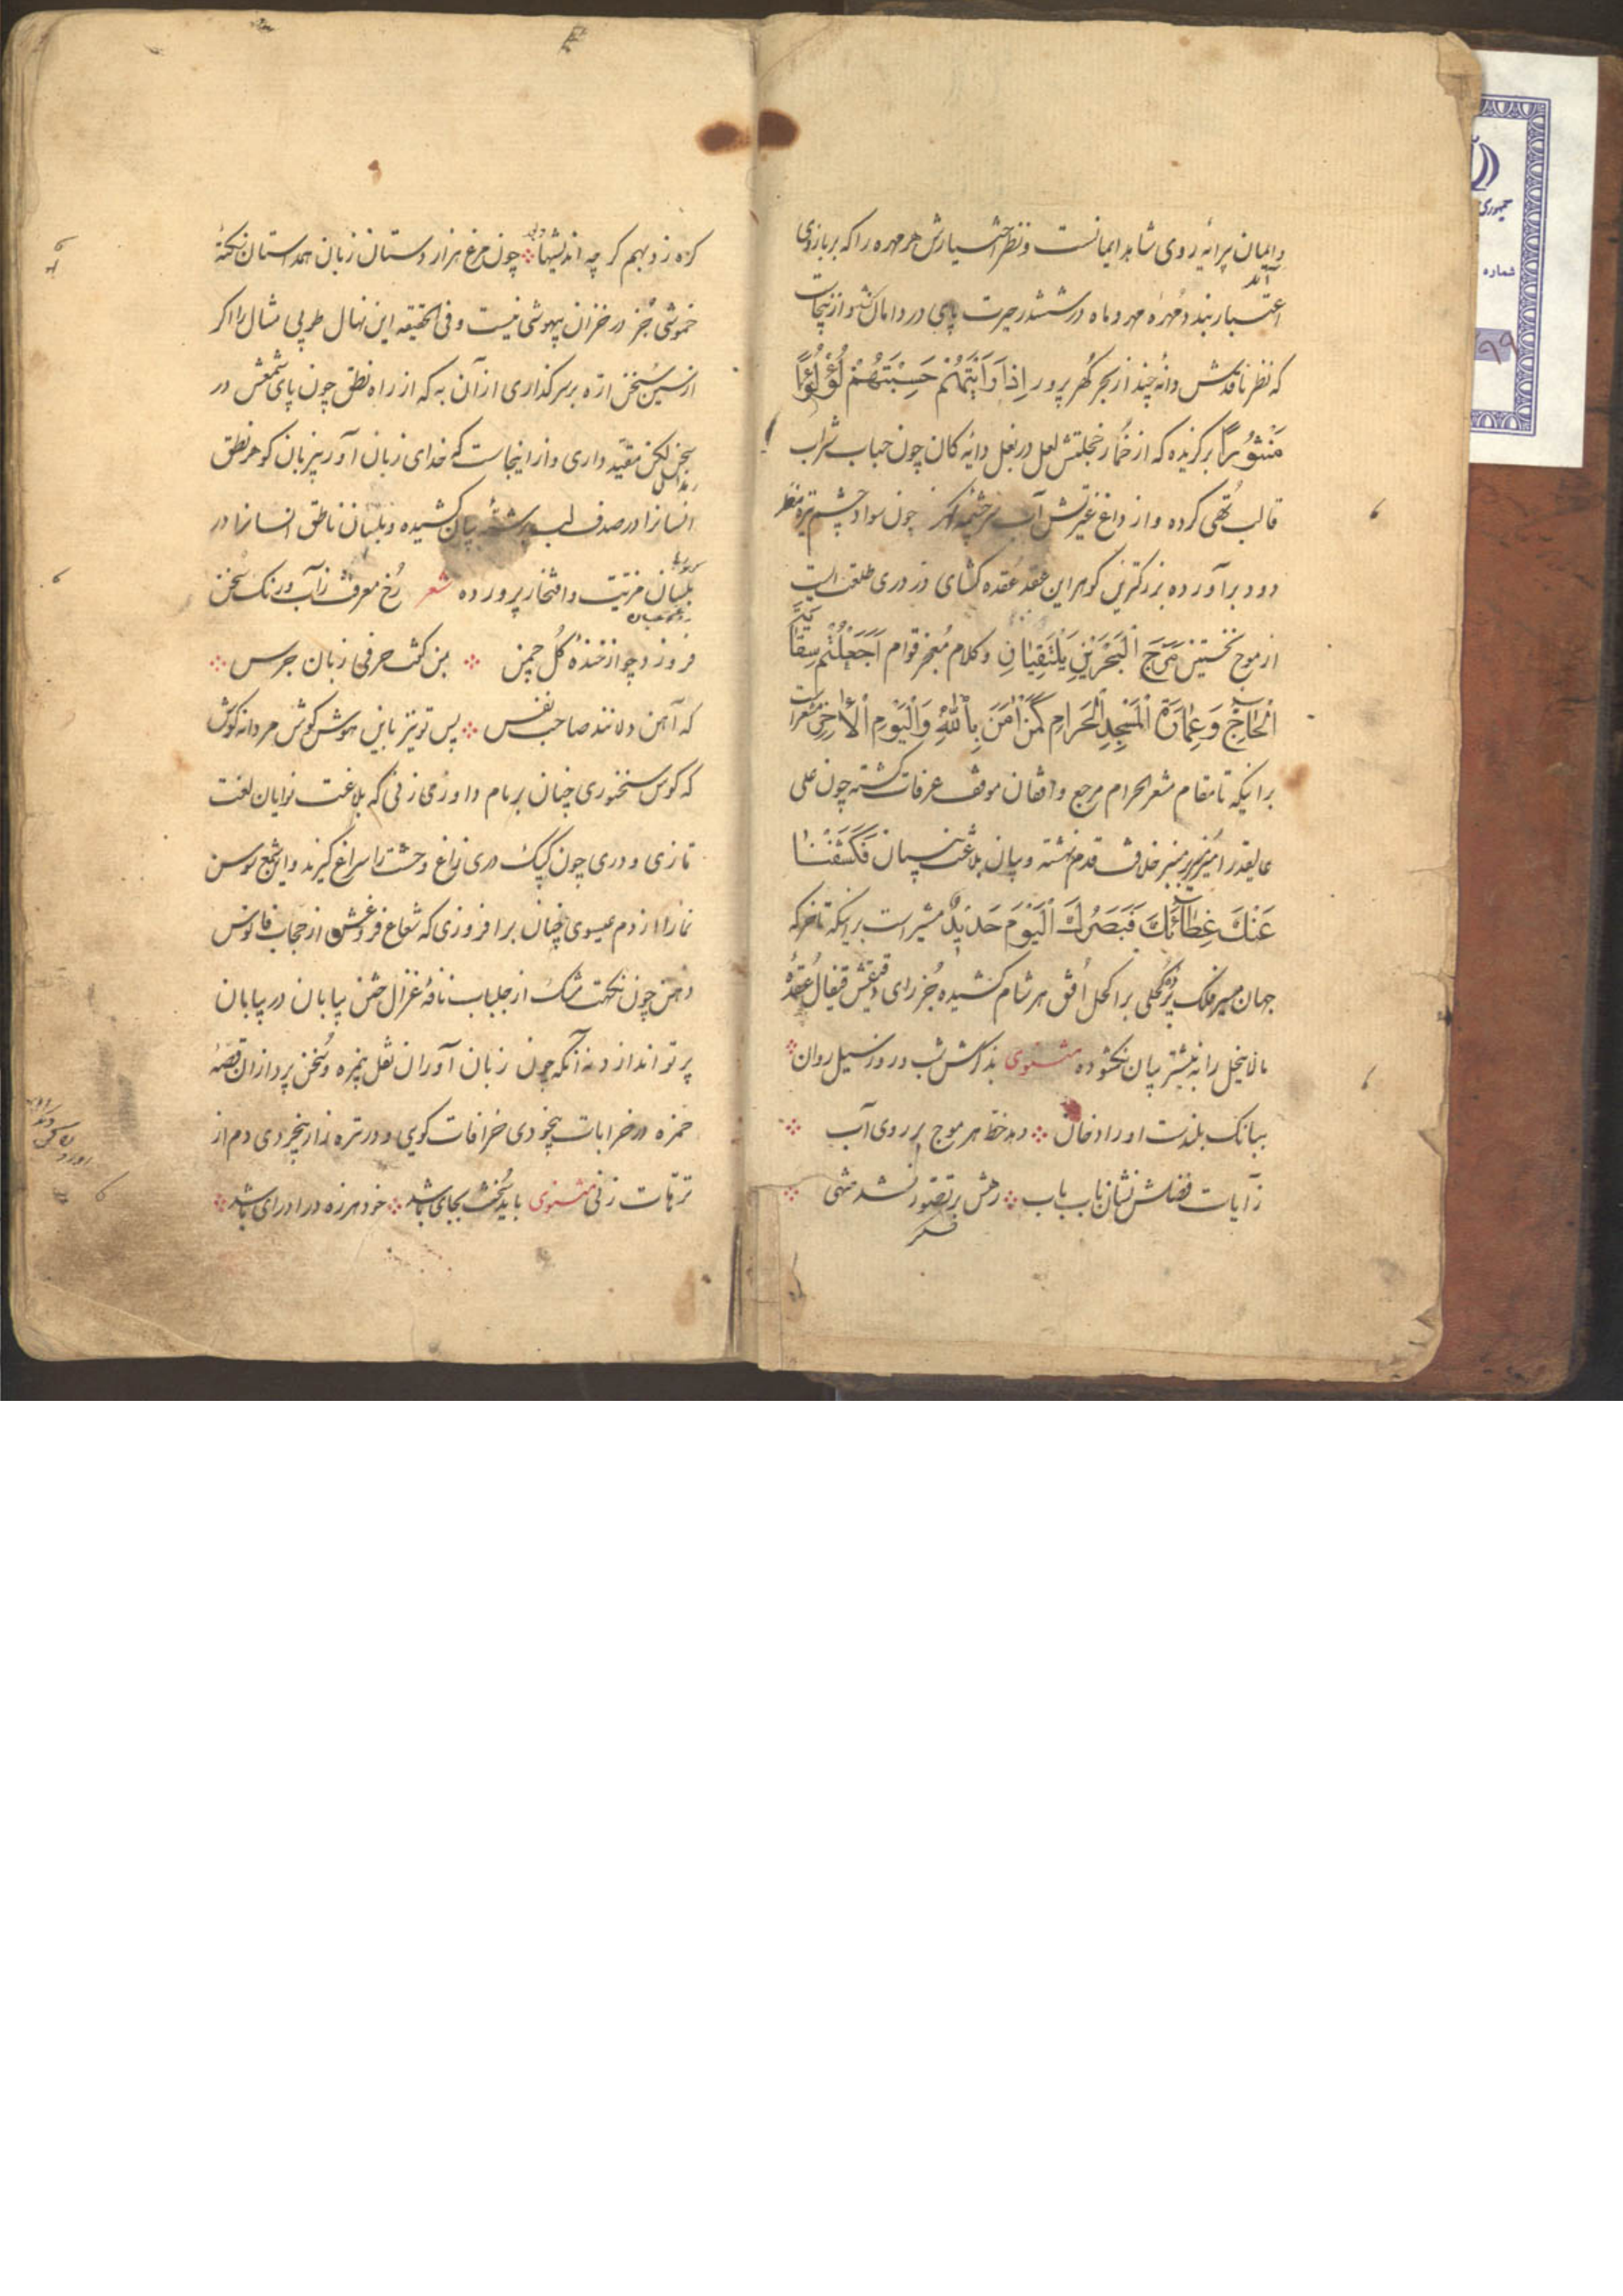 وایمان پرایهٔ روی شاهد ایمانست و نظر اختسیارش هر مهره را که بر بازوی
اعتسبار بندد مُهرهٔ مهر و ماه در ششدر حیرت پای در دامان کشد و از نیجاست
که نظر ناقدش دانهٔ چند از بحر گُهر پرور اِذَا رَاَیْتَهُمْ حَسِبْتَهُمْ لُؤْلُؤًا
مَنْثُورًا برگزیده که از خمُار خجلتش لعل در بغل دایهٔ کان چون حباب شراب
قالب تُهی کرده و از داغ غیرتش آب سرچشمه چون سواد چشم تیره منظر
دود برآورده بزرکترین کوهر این عقد عُقده کشای دُر دری طلعت است
از موج نخستین مَرَجَ الْبَحْرَیْنِ یَلْتَقِیَانِ وکلام مُعجز قوام اَجَعَلْتُمْ سِقَایَةَ
الْحَاجِّ وَعِمَارَةَ الْمَسْجِدِ الْحَرَامِ کَمَنْ اٰمَنَ بِاللّٰهِ وَالْیَوْمِ الْاٰخِرِ مشعر است
برانیکه تا مقام مشعر الحرام مرجع واقفان موقف عرفات کشته چون علی
عالیقدر امیری بر منبر خلافت قدم نهشته و بیان بلاغت فَکَشَفْنَا
عَنْکَ غِطَآئَکَ فَبَصَرُکَ الْیَوْمَ حَدِیْدٌ مشیر است برانیکه تا
جهان فلک کُحلی بر اکحل اُفق هر شام کشیده جُز رای دقیقش قیفال عُقدهٔ
مالاینحل را به نیشتر بیان نکشوده مثنوی بذاکرش شب و روز سیل روان
ببانک بلندست اوراد خوان دهد خط هر موج بر روی آب
ز آیات فضلش نشان باب باب رهش بر تصّور نشد منتهی
کره زد بهم کر چه اندیشها چون مرغ هزار دستان زبان همداستان نکتهٔ
خموشی جُز در خزان بیهوشی نیست و فی الحقیقه این نهال طوبی مثال را اکر
از سین سُخن ازه بر سر کذاری از آن به که از راه نطق چون پای شمعش در
سخن لکن مقیّد داری و از اینجاست که خدای زبان آور بیزبان کوهر نطق
انسانرا در صدف لب رشتهٔ بیان کشیده و بلسان ناطق انسانرا در
بلسان مزیّت و افتخار پرورده شعر رُخ معرفت ز آب و رنک سُخن
فروزد چو از خندهٔ کُل چمن بمن کفت حرفی زبان جرس
که آهن دلانند صاحب نفس پس تو نیز باین هوش کوش مردانه کوش
که کوس سخنوری چنان بر بام داوری زنی که بلاغت نوایان لغت
تازی و دری چون کبک دری زاغ وحشت را سراغ کیرند و این شمع
نما را از دم عیسوی چنان برافروزی که شعاع فروغش از حجاب فانوس
دهن چون نکهت مشک از جلباب نافهٔ غزال ختن بیابان در بیابان
پرتو اندازد نه آنکه چون زبان آوران نقل بیمزه و سُخن پردازان قصّهٔ
حمزه در خرابات بیخودی خرافات کویی و در تره زار بیخردی دم از
ترهات زنی مثنوی باید سُخنت بجای باشد خود هرزه درا درای باشد
جمهوری
شماره